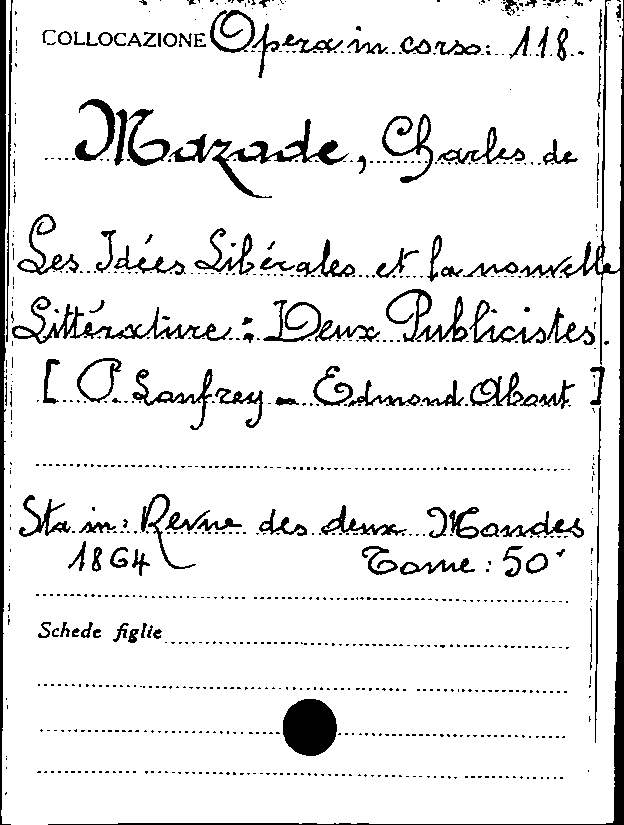 COLLOCAZIONE Opera in corso: 118.
Mazade, Charles de
Les Idées Libérales et la nouvelle
Littérature: Deux Publicistes.
[P. Lanfrey - Edmond About]
Sta in: Revue des deux Mondes
1864 Tome: 50°
Schede figlie